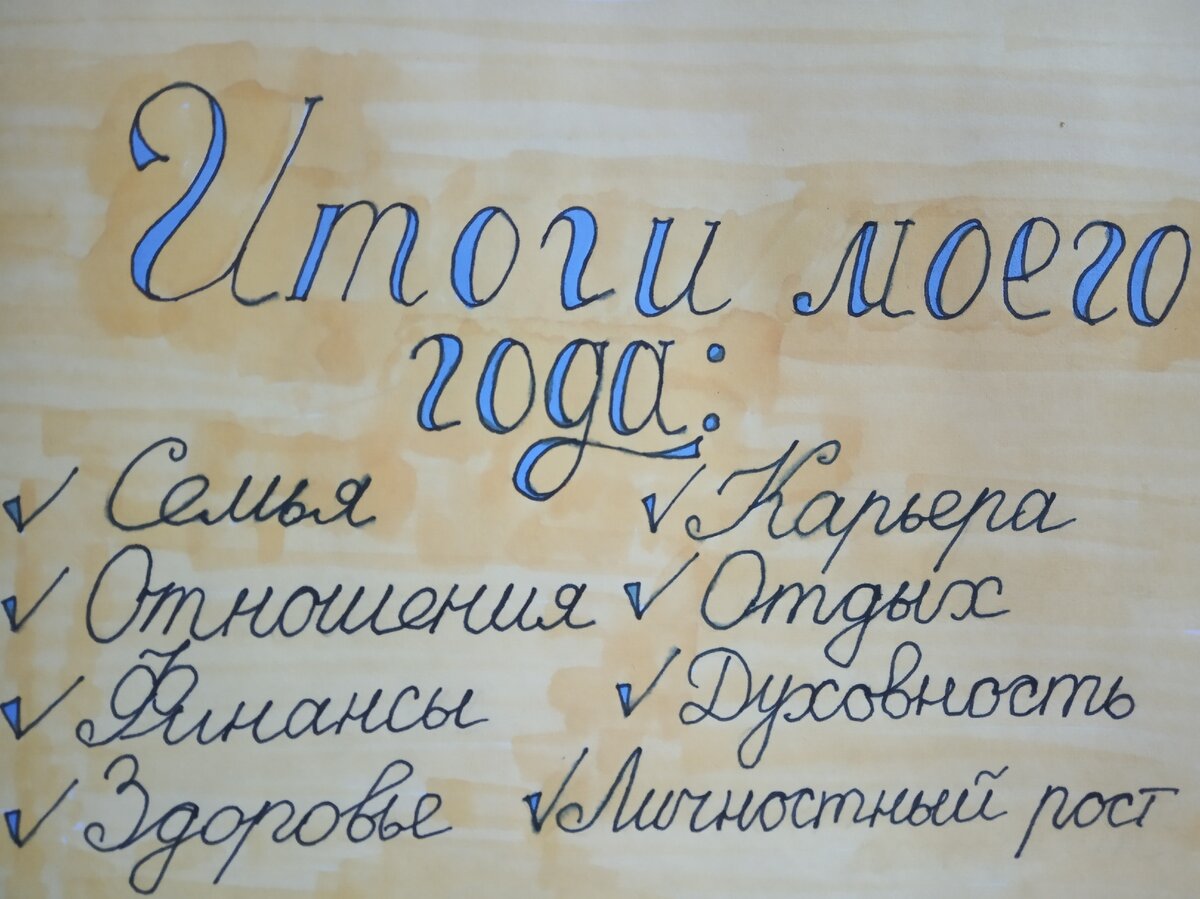 Итоги моего
года:
✓ Семья
✓ Отношения
✓ Финансы
✓ Здоровье
✓ Карьера
✓ Отдых
✓ Духовность
✓ Личностный рост